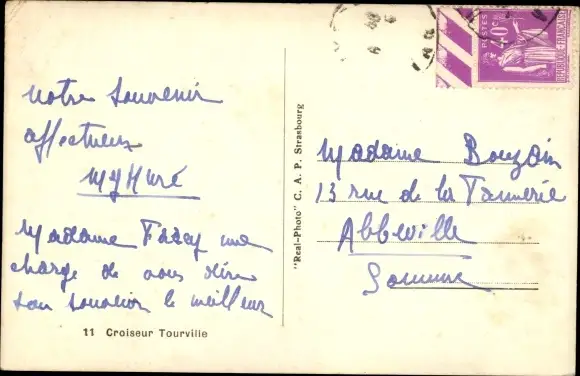 Notre souvenir
affectueux
Madame Fracy me
charge de vous dire
son souvenir le meilleur
11 Croiseur Tourville
"Real-Photo" C. A. P. Strasbourg
POSTES
40c
REPUBLIQUE FRANÇAISE
Madame Bouzain
13 rue de la Tannerie
Abbeville
Somme